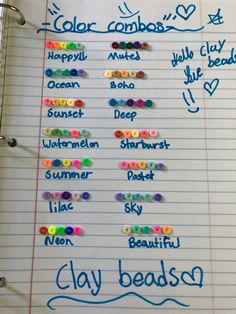 Color combos
Happy!!
Muted
Hello Clay
bead
Ocean
Boho
Sunset
Deep
Watermelon
Starburst
Summer
Pastel
lilac
Sky
Neon
Beautiful
Clay beads